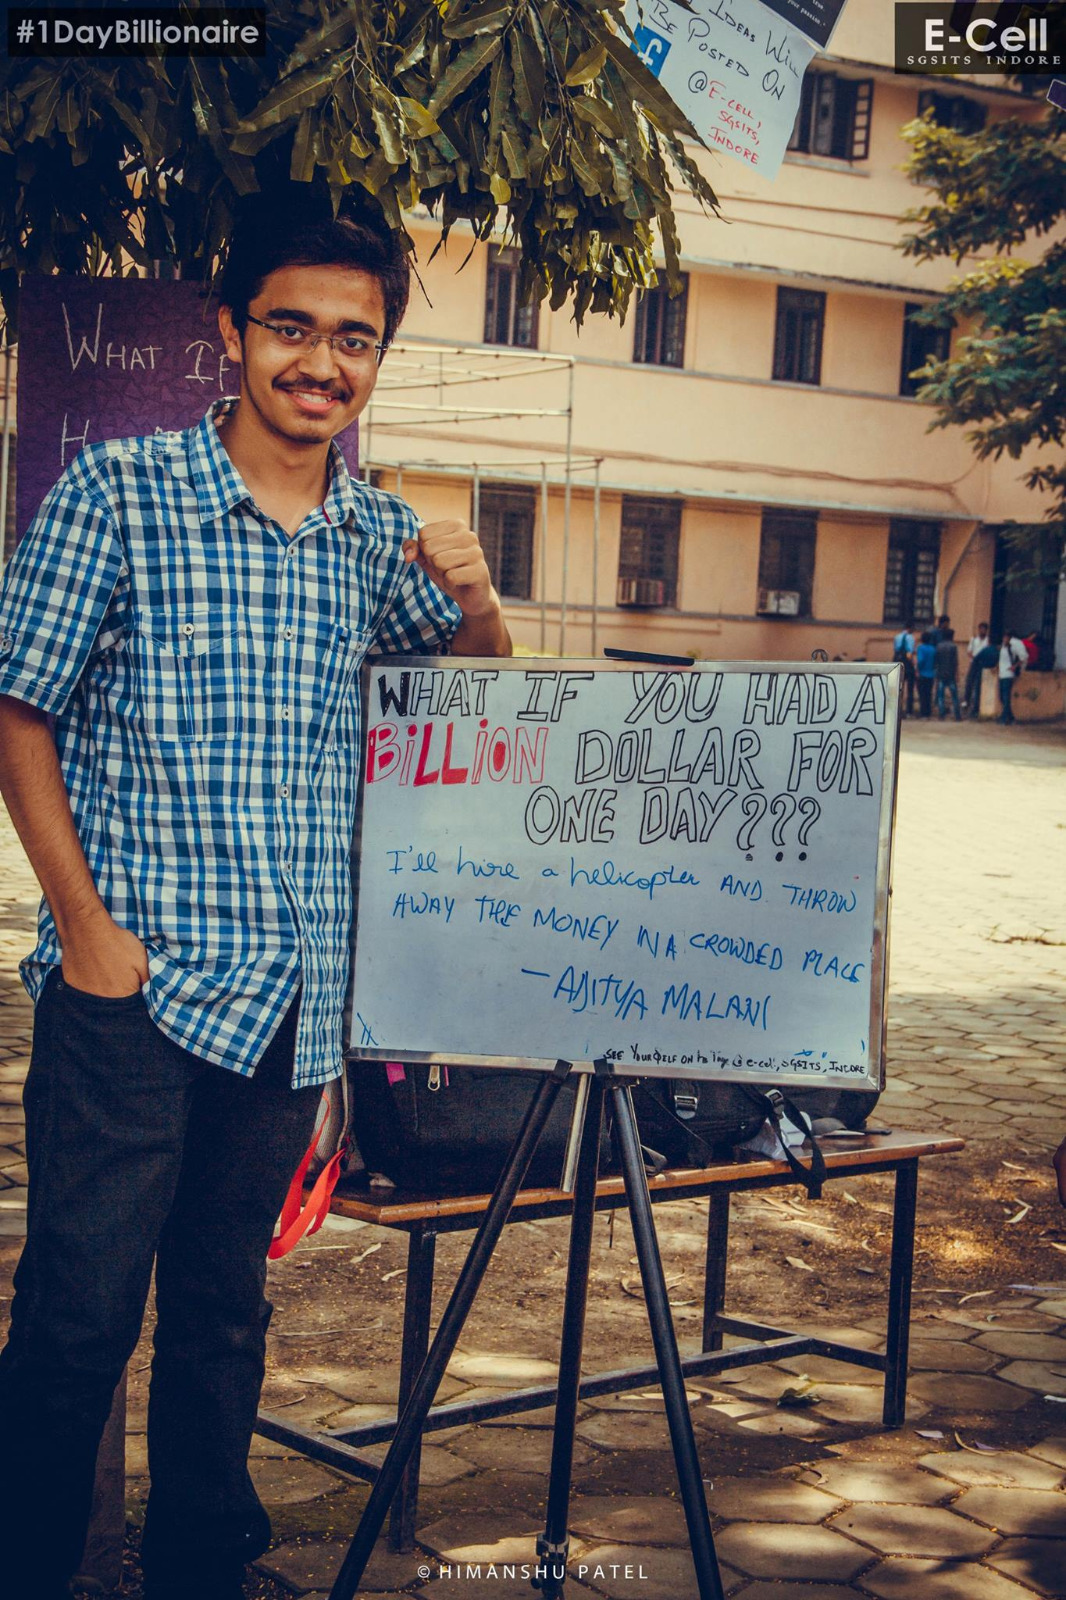 #1DayBillionaire
E-Cell
SGSITS INDORE
IDEAS WILL
BE POSTED ON
@E-CELL,
SGSITS,
INDORE
WHAT IF
WHAT IF YOU HAD A
BiLLiON DOLLAR FOR
ONE DAY???
I'll hire a helicopter AND THROW
AWAY THE MONEY IN A CROWDED PLACE
— ADITYA MALANI
SEE YOURSELF ON @ e-cell, SGSITS, INDORE
© HIMANSHU PATEL